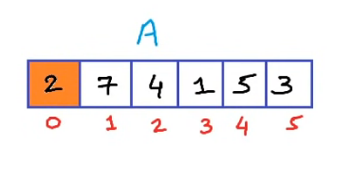 A
2 7 4 1 5 3
0 1 2 3 4 5